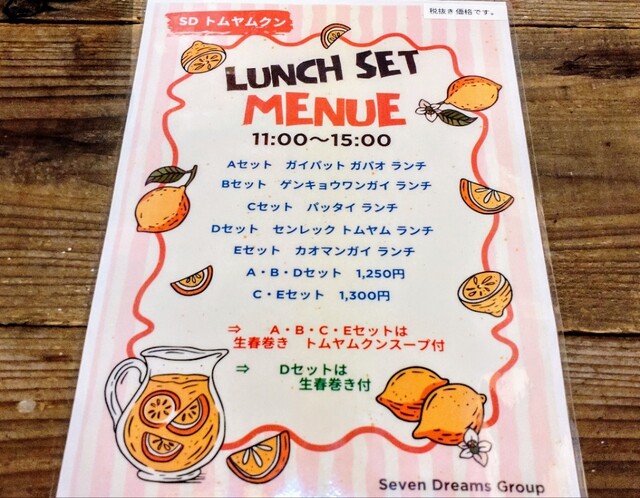 税抜き価格です。
SD トムヤムクン
LUNCH SET
MENUE
11:00～15:00
Aセット　ガイパット ガパオ ランチ
Bセット　ゲンキョウワンガイ ランチ
Cセット　パッタイ ランチ
Dセット　センレック トムヤム ランチ
Eセット　カオマンガイ ランチ
A・B・Dセット　1,250円
C・Eセット　1,300円
⇒　A・B・C・Eセットは
生春巻き　トムヤムクンスープ付
⇒　Dセットは
生春巻き付
Seven Dreams Group